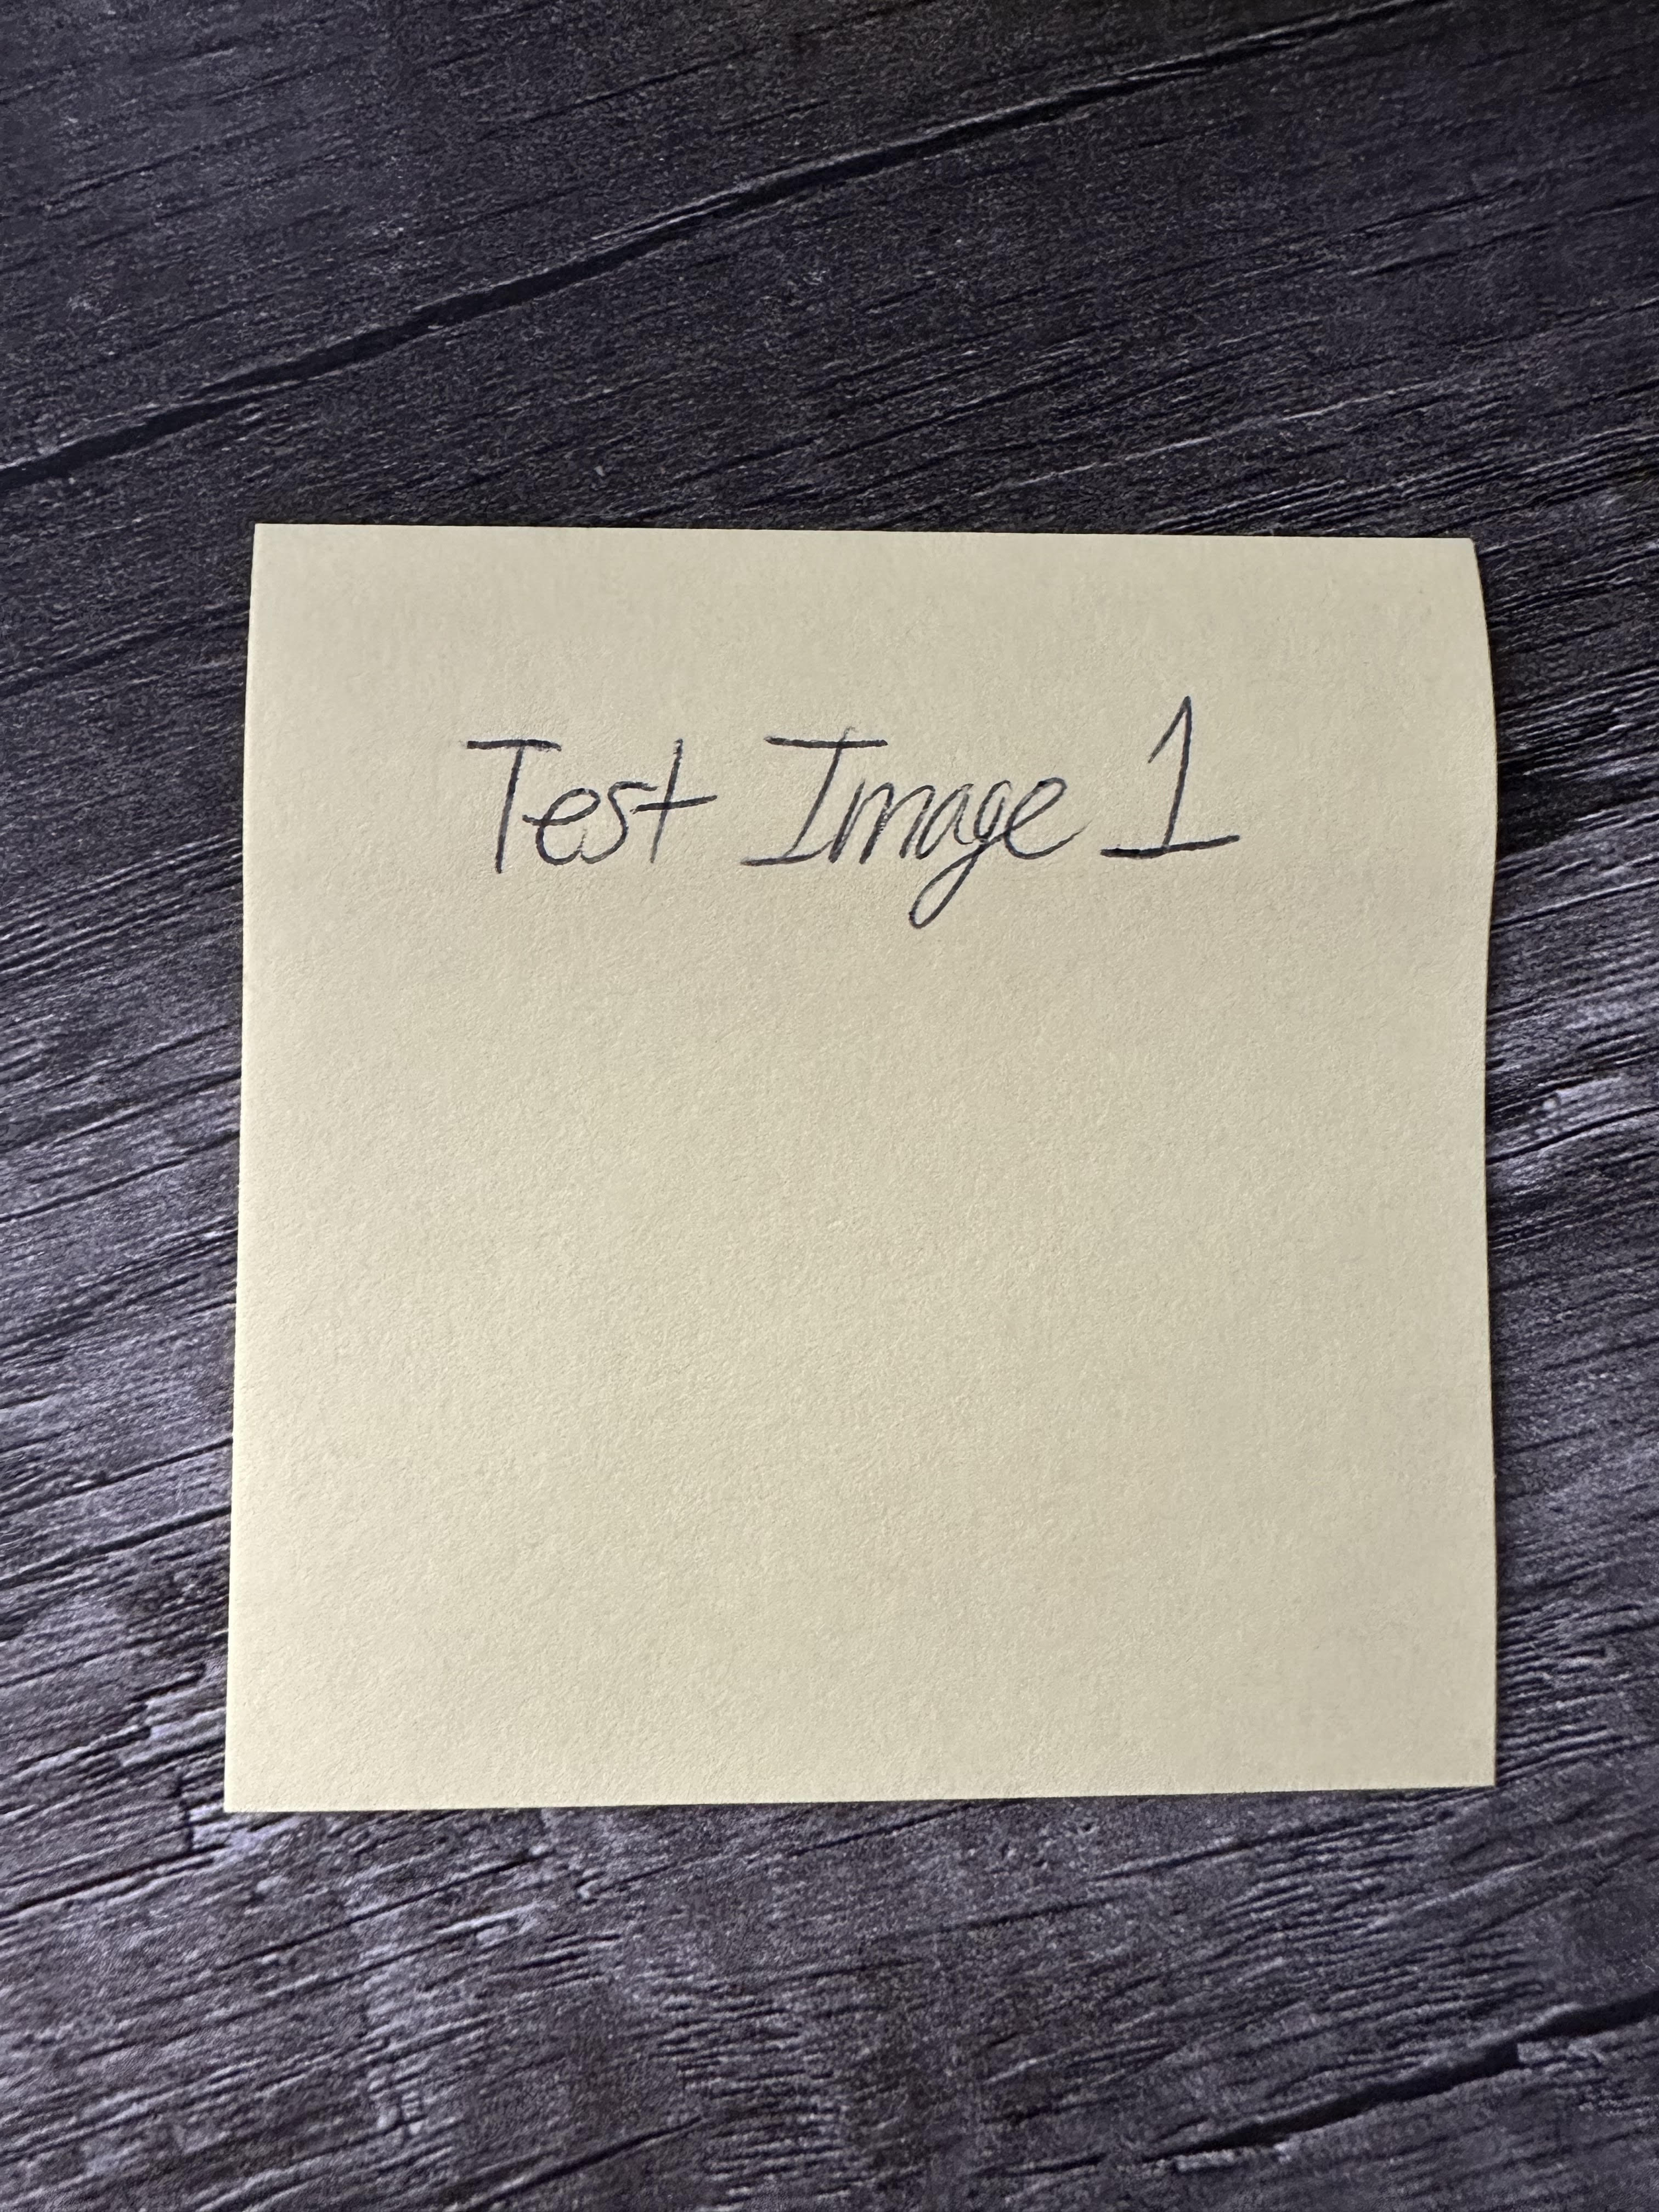 Test Image 1